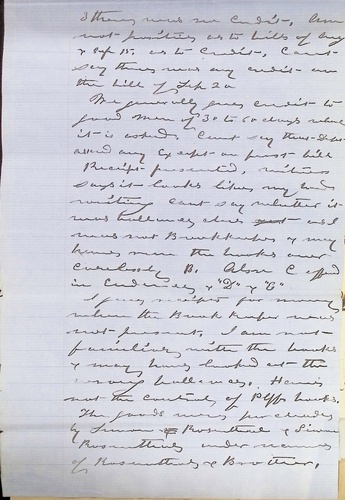 there was no credit, am
not positive as to bills of Aug
& Sep 15. as to credit, Cant
say there was any credit on
the bill of Sep 20
We generally give credit to
good men of 30 to 60 days when
it is asked. Cant say they
asked any except on first bill
Receipt presented, witness
says it looks like my hand
writing Cant say whether it
was balance as I
was not Bookkeeper & may
have the books over
B. Also C offd
in Evidence, & "D" & "C"
I gave receipt for money
when the Book keeper was
not present. I am not
familiar with the books
& may have looked at the
wrong balance. Have
not the custody of Plffs books.
The goods were purchased
by Simon Rosenthal & Simon
Rosenthal under name
of Rosenthal & Brother.